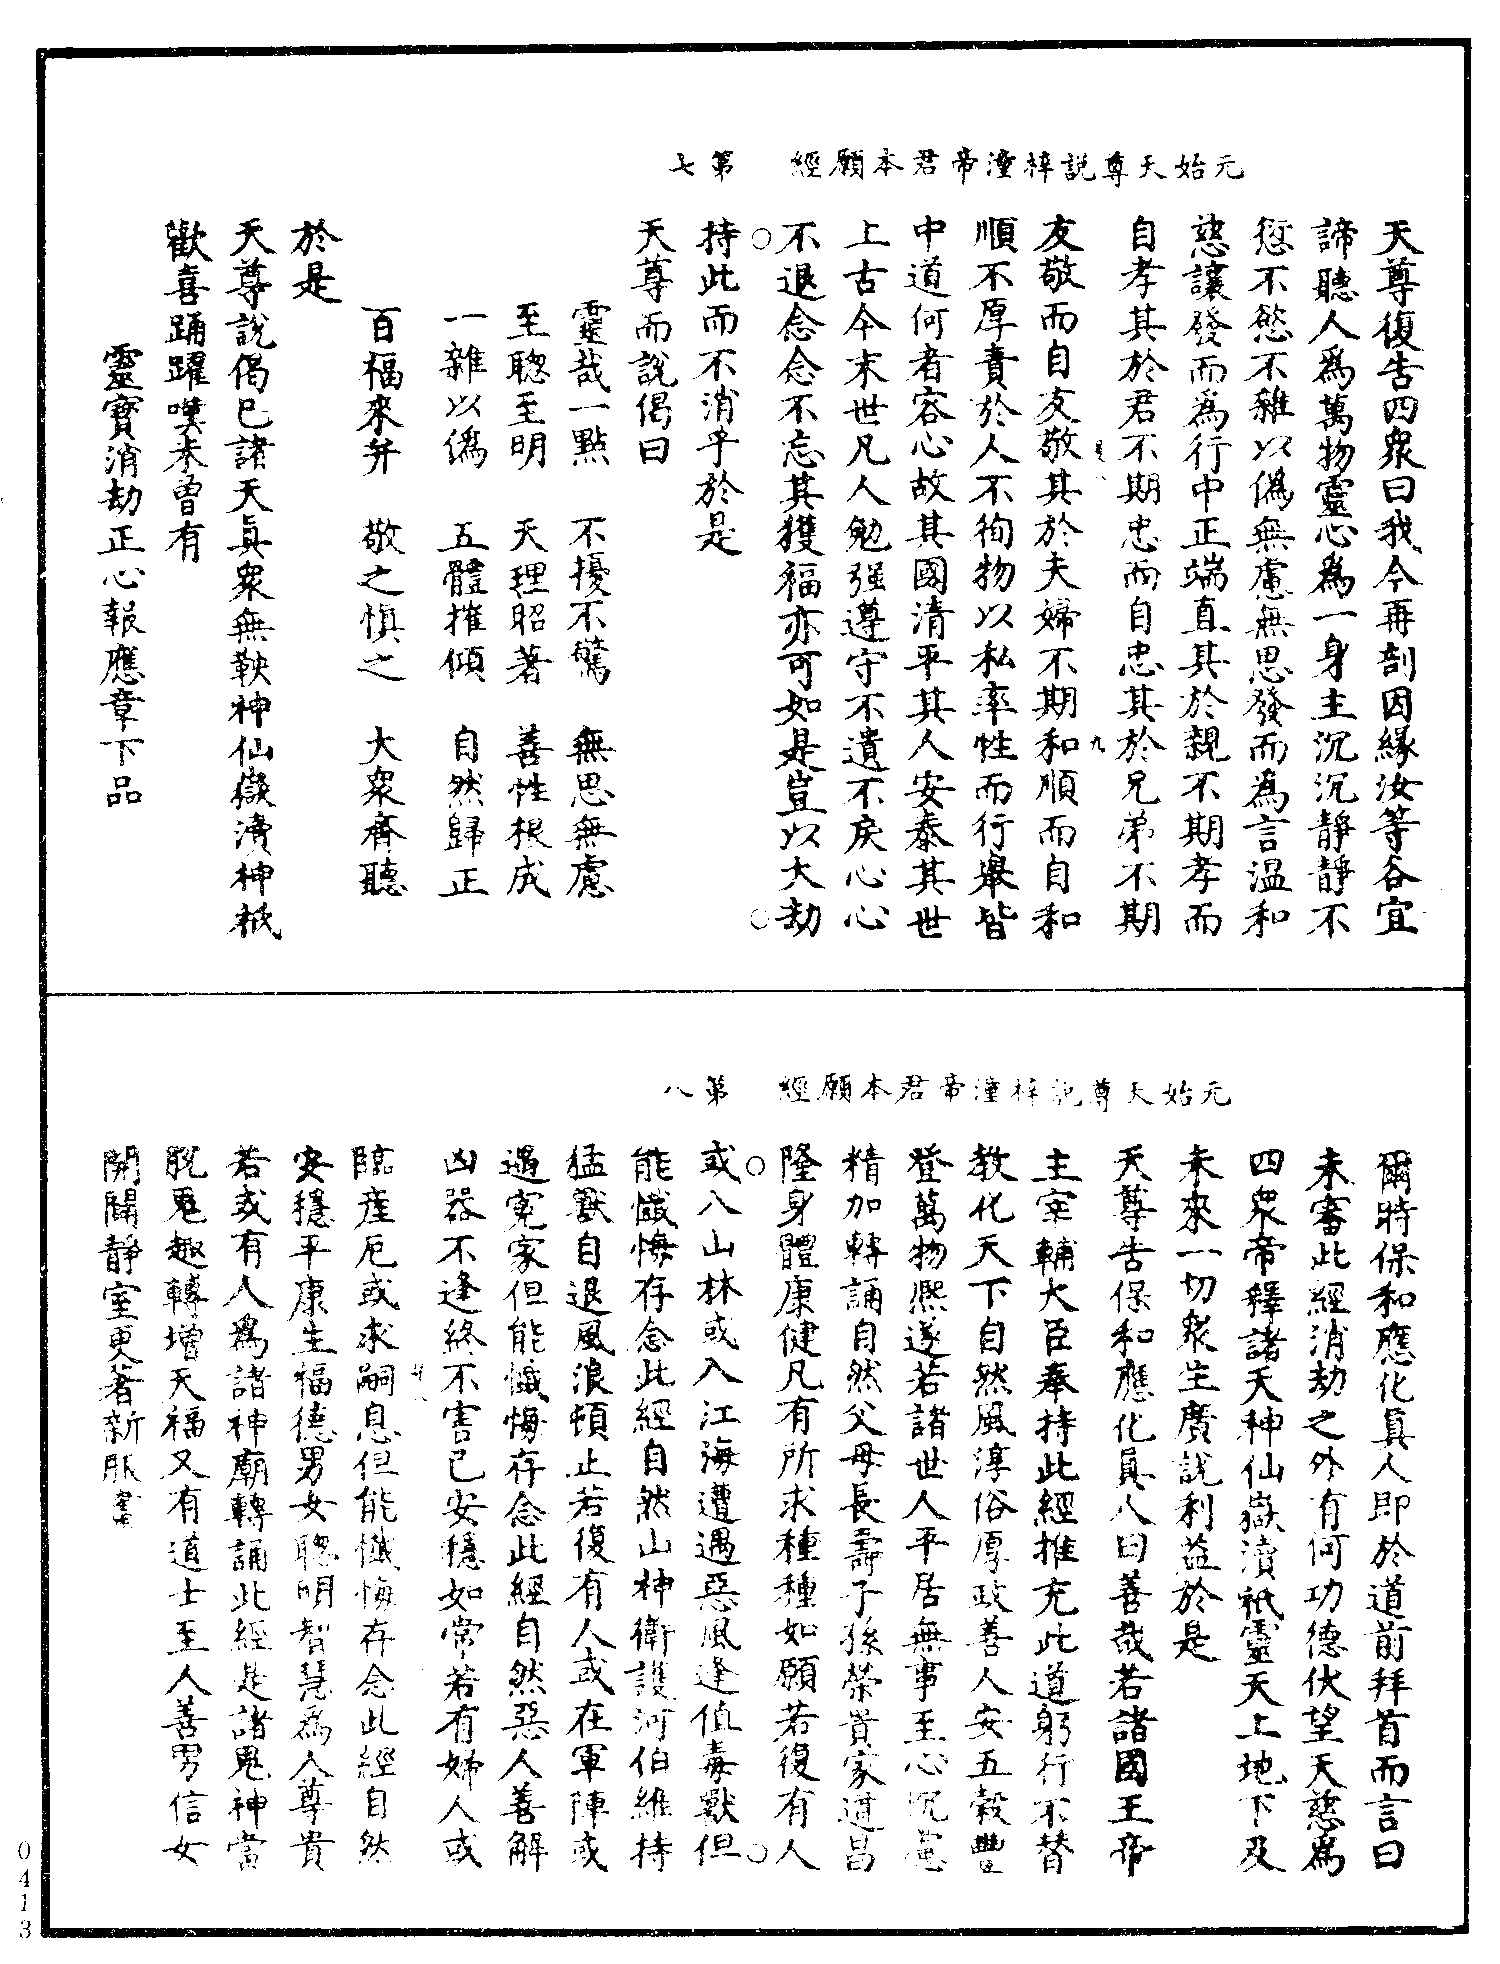 元始天尊說梓潼帝君本願經 第七
天尊復告四衆曰我今再剖因緣汝等各宜
諦聽人爲萬物靈心爲一身主沉沉靜靜不
愆不慾不雜以僞無慮無思發而為言温和
慈讓發而為行中正端直其於親不期孝而
自孝其於君不期忠而自忠其於兄弟不期
九
友敬而自友敬其於夫婦不期和順而自和
順不厚責於人不徇物以私率性而行舉皆
中道何者容心故其國清平其人安泰其世
上古今末世凡人勉强遵守不遺不戾心心
不退念念不忘其獲福亦可如是豈以大劫
持此而不消乎於是
天尊而說偈曰
靈哉一點 不擾不驚 無思無慮
至聰至明 天理昭著 善性根成
一雜以僞 五體摧傾 自然歸正
百福來并 敬之慎之 大衆齊聽
於是
天尊說偈已諸天眞衆無鞅神仙嶽瀆神祇
歡喜踊躍嘆未曾有
靈寶消劫正心報應章下品
元始天尊說梓潼帝君本願經 第八
爾時保和應化眞人即於道前拜首而言曰
未審此經消劫之外有何功德伏望天慈爲
四衆帝釋諸天神仙嶽瀆祇靈天上地下及
未來一切衆生廣說利益於是
天尊告保和應化眞人曰善哉若諸國王帝
主宰輔大臣奉持此經推充此道躬行不替
教化天下自然風淳俗厚政善人安五穀豐
登萬物熙遂若諸世人平居無事至心沉慮
精加轉誦自然父母長壽子孫榮貴家道昌
隆身體康健凡有所求種種如願若復有人
或入山林或入江海遭遇惡風逢值毒獸但
能懺悔存念此經自然山神衛護河伯維持
猛獸自退風浪頓止若復有人或在軍陣或
遇寃家但能懺悔存念此經自然惡人善解
凶器不逢終不害已安穩如常若有婦人或
臨産厄或求嗣息但能懺悔存念此經自然
安穩平康生福德男女聰明智慧爲人尊貴
若或有人爲諸神廟轉誦此經是諸鬼神當
脫鬼趣轉增天福又有道士至人善男信女
開闢靜室更著新服書
0413